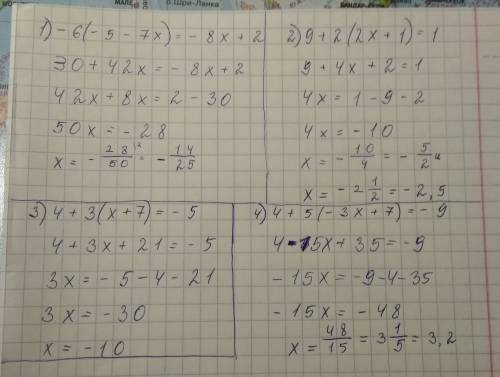 р. Шри-Ланка
1) -6(-5-7x)=-8x+2
30+42x=-8x+2
42x+8x=2-30
50x=-28
x=-28/50=-14/25
2) 9+2(2x+1)=1
9+4x+2=1
4x=1-9-2
4x=-10
x=-10/4=-5/2
x=-2 1/2=-2,5
3) 4+3(x+7)=-5
4+3x+21=-5
3x=-5-4-21
3x=-30
x=-10
4) 4+5(-3x+7)=-9
4-15x+35=-9
-15x=-9-4-35
-15x=-48
x=48/15=3 1/5=3,2